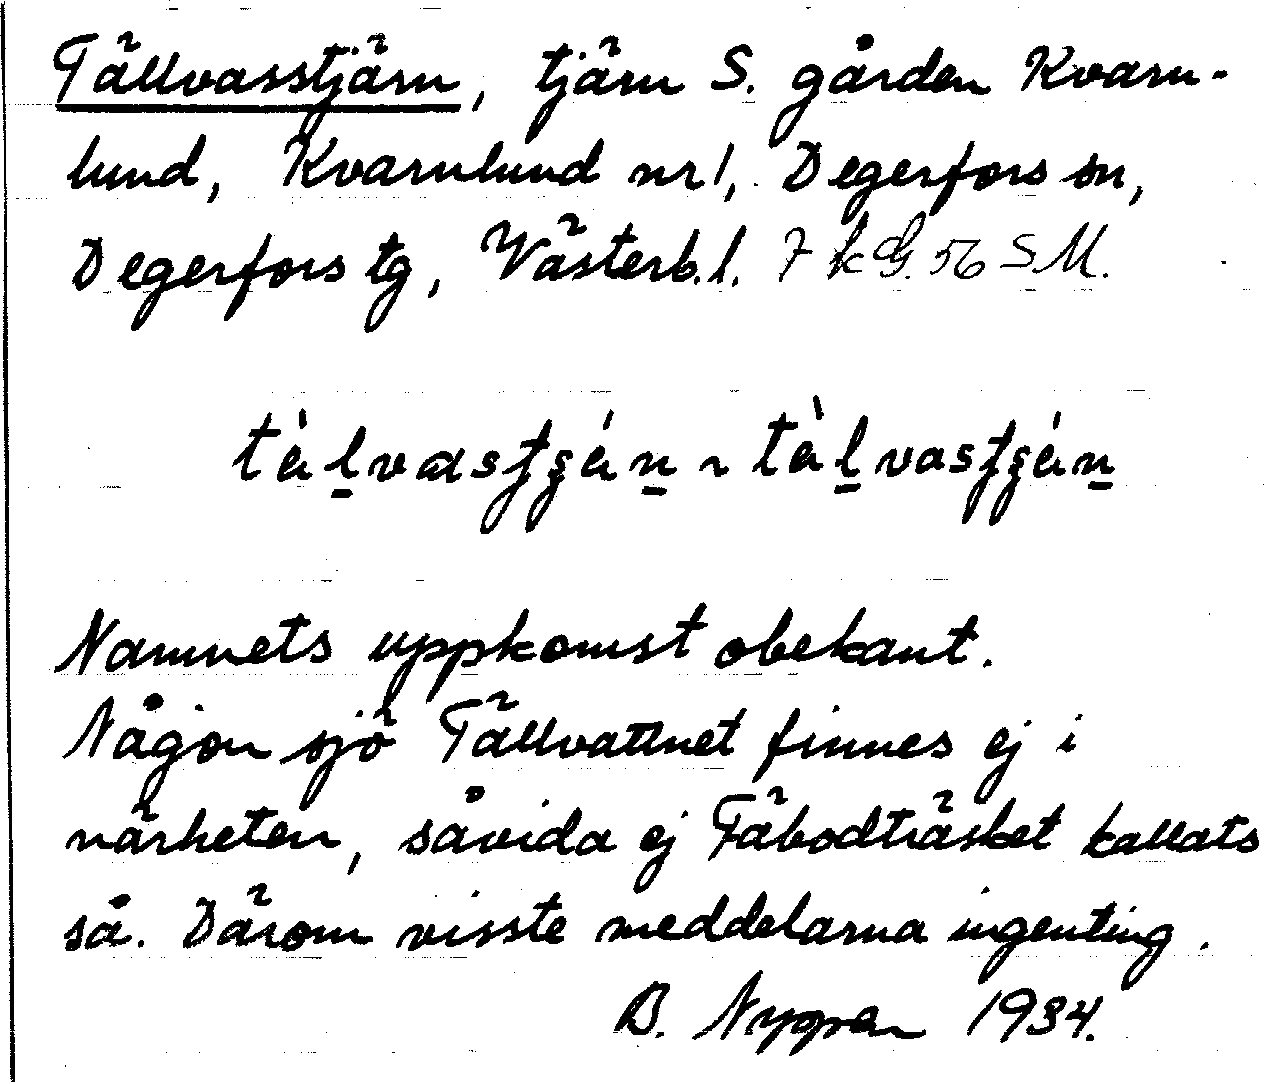 Tällvasstjärn, tjärn S. gården Kvarn-
lund, Kvarnlund nr 1, Degerfors sn,
Degerfors tg, Västerb. l. 7 k G. 56 SM.
Namnets uppkomst obekant.
Någon sjö Tällvattnet finnes ej i
närheten, såvida ej Fäbodträsket kallats
så. Därom visste meddelarna ingenting.
B. Nygren 1934.